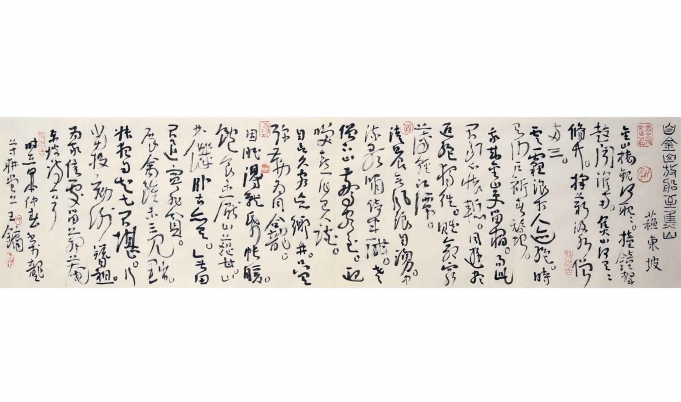 自金山放船至焦山
蘇東坡
金山樓觀何眈眈。撞鐘擊
鼓聞淮南。焦山何有有
脩竹。採薪汲水僧
兩三。
雲霾浪打人迹絕。時
有沙戶祈春蠶。
我來金山更留宿。而此
不到心懷慚。同遊盡
返決獨往。賦命窮
薄輕江潭。
清晨無風浪自湧。中
流歌嘯倚半酣。老
僧下山驚客至。迎
笑喜作巴人談。
自言久客忘鄉井。只有
彌勒為同龕。
困眠得就紙帳暖。
飽食未厭山蔬甘。山
林飢臥古亦有。無田
不退寧非貪。
展禽雖未三見黜。
叔夜自知七不堪。行
當投劾謝簪組。
為我佳處留茅庵
東坡詩一首
仲春
王鏞